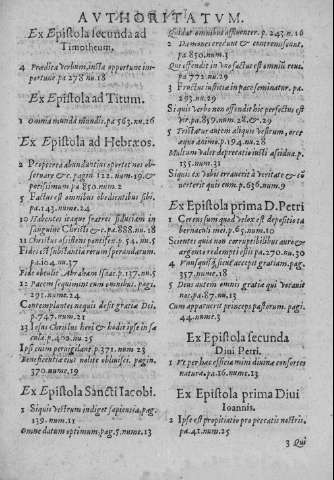 AVTHORITATVM.
Ex Epistola secunda ad
Timotheum.
4 Prædica verbum, insta opportune im-
portune pa 278 nu.18
Ex Epistola ad Titum.
1 Omnia munda mundis. pa 563. nu.26
Ex Epistola ad Hebræos.
2 Propterea abundantius oportet nos ob-
seruare &c. pagin 122. num.19. &
potissimum pa 850. num.2
5 Factus est omnibus obedientibus sibi.
pa.143. nume.24
10 Habentes itaque fratres fiduciam in
sanguine Christi &c. pa.888. nu.18
11 Christus assistens pontifex. p. 54. nu.5
Fides est substantia rerum sperandarum.
pa.104. nu.17
Fide obtulit Abraham Isaac. p.137. nu.5
12 Pacem sequimini cum omnibus. pagi.
291. nume.24
Contemplantes nequis desit gratiæ Dei.
p.747. num.21
13 Iesus Christus heri & hodie ipse in sæ-
cula. p.400. nu.25
Ipsi enim peruigilant. p.371. num 23
Beneficentiæ enim nolite obliuisci. pagin.
370. nume.19
Ex Epistola Sancti Iacobi.
1 Siquis vestrum indiget sapientia, pag.
139. num.11
Omne datum optimum. pag.5. nume.13
Qui dat omnibus affluenter. p.243. n.16
2 Dæmones credunt & contremiscunt.
pa 850. num.3
Qui offendit in vno factus est omniũ reus.
pa 772. nu.29
3 Fructus iustitiæ in pace seminatur. pa.
293. nu.29
Siquis verbo non offendit hic perfectus est
vir. pa.859. num.28. & .29
5 Tristatur autem aliquis vestrûm, oret
æquo animo. p.194. nu.28
Multum valet deprecatio iusti assidua. p.
135. num.31
Siquis ex vobis errauerit à veritate & cõ
uerterit quis eum. p.636. num.9
Ex Epistola prima D. Petri
1 Certus sum quod velox est depositio ta
bernaculi mei. p.65. num.10
Scientes quia non corruptibilibus auro &
argento redempti estis pa.270. nu.30
4 Vnusquisq; sicut accepit gratiam. pag.
357. nume.18
5 Deus autem omnis gratiæ qui vocauit
nos. pa.87. nu.13
Cum apparuerit princeps pastorum. pagi.
44. nume.3
Ex Epistola secunda
Diui Petri.
1 Vt per hæc efficiamini diuinæ consortes
naturæ. pa.16. nume.13
Ex Epistola prima Diui
Ioannis.
2 Ipse est propitiatio pro peccatis nostris.
pa.41. num.25
3 Qui